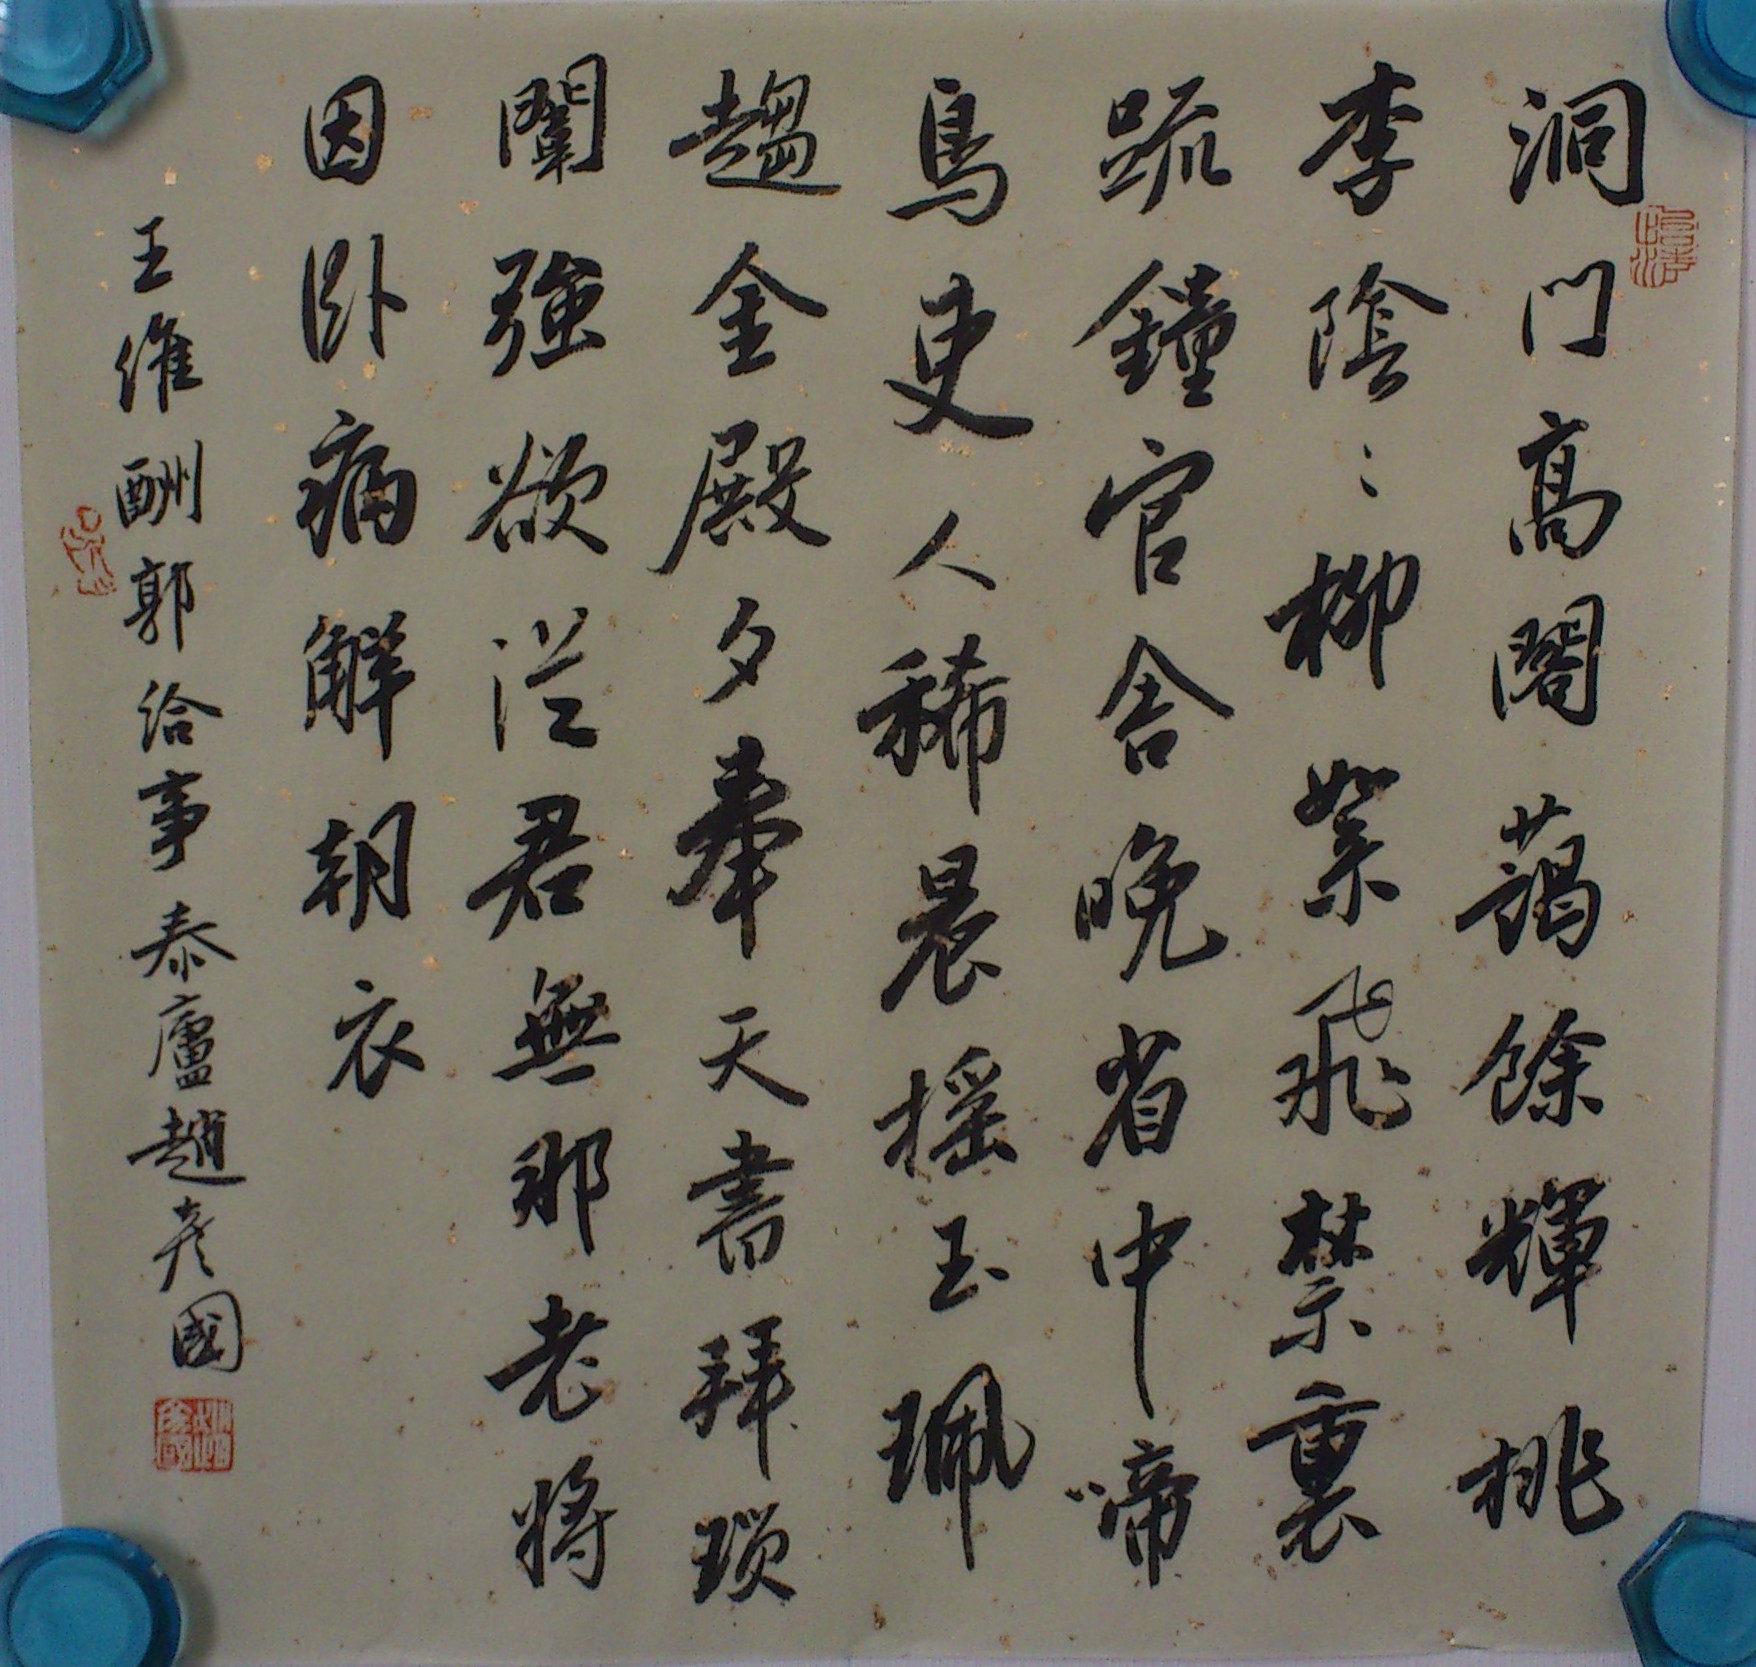 洞门高閣藹餘輝桃
李陰〻柳絮飛禁裏
疏鐘官舍晚省中啼
鳥吏人稀晨摇玉珮
趨金殿夕奉天書拜瑣
闈強欲從君無那老將
因卧病解朝衣
王維酬郭给事泰廬趙彦國